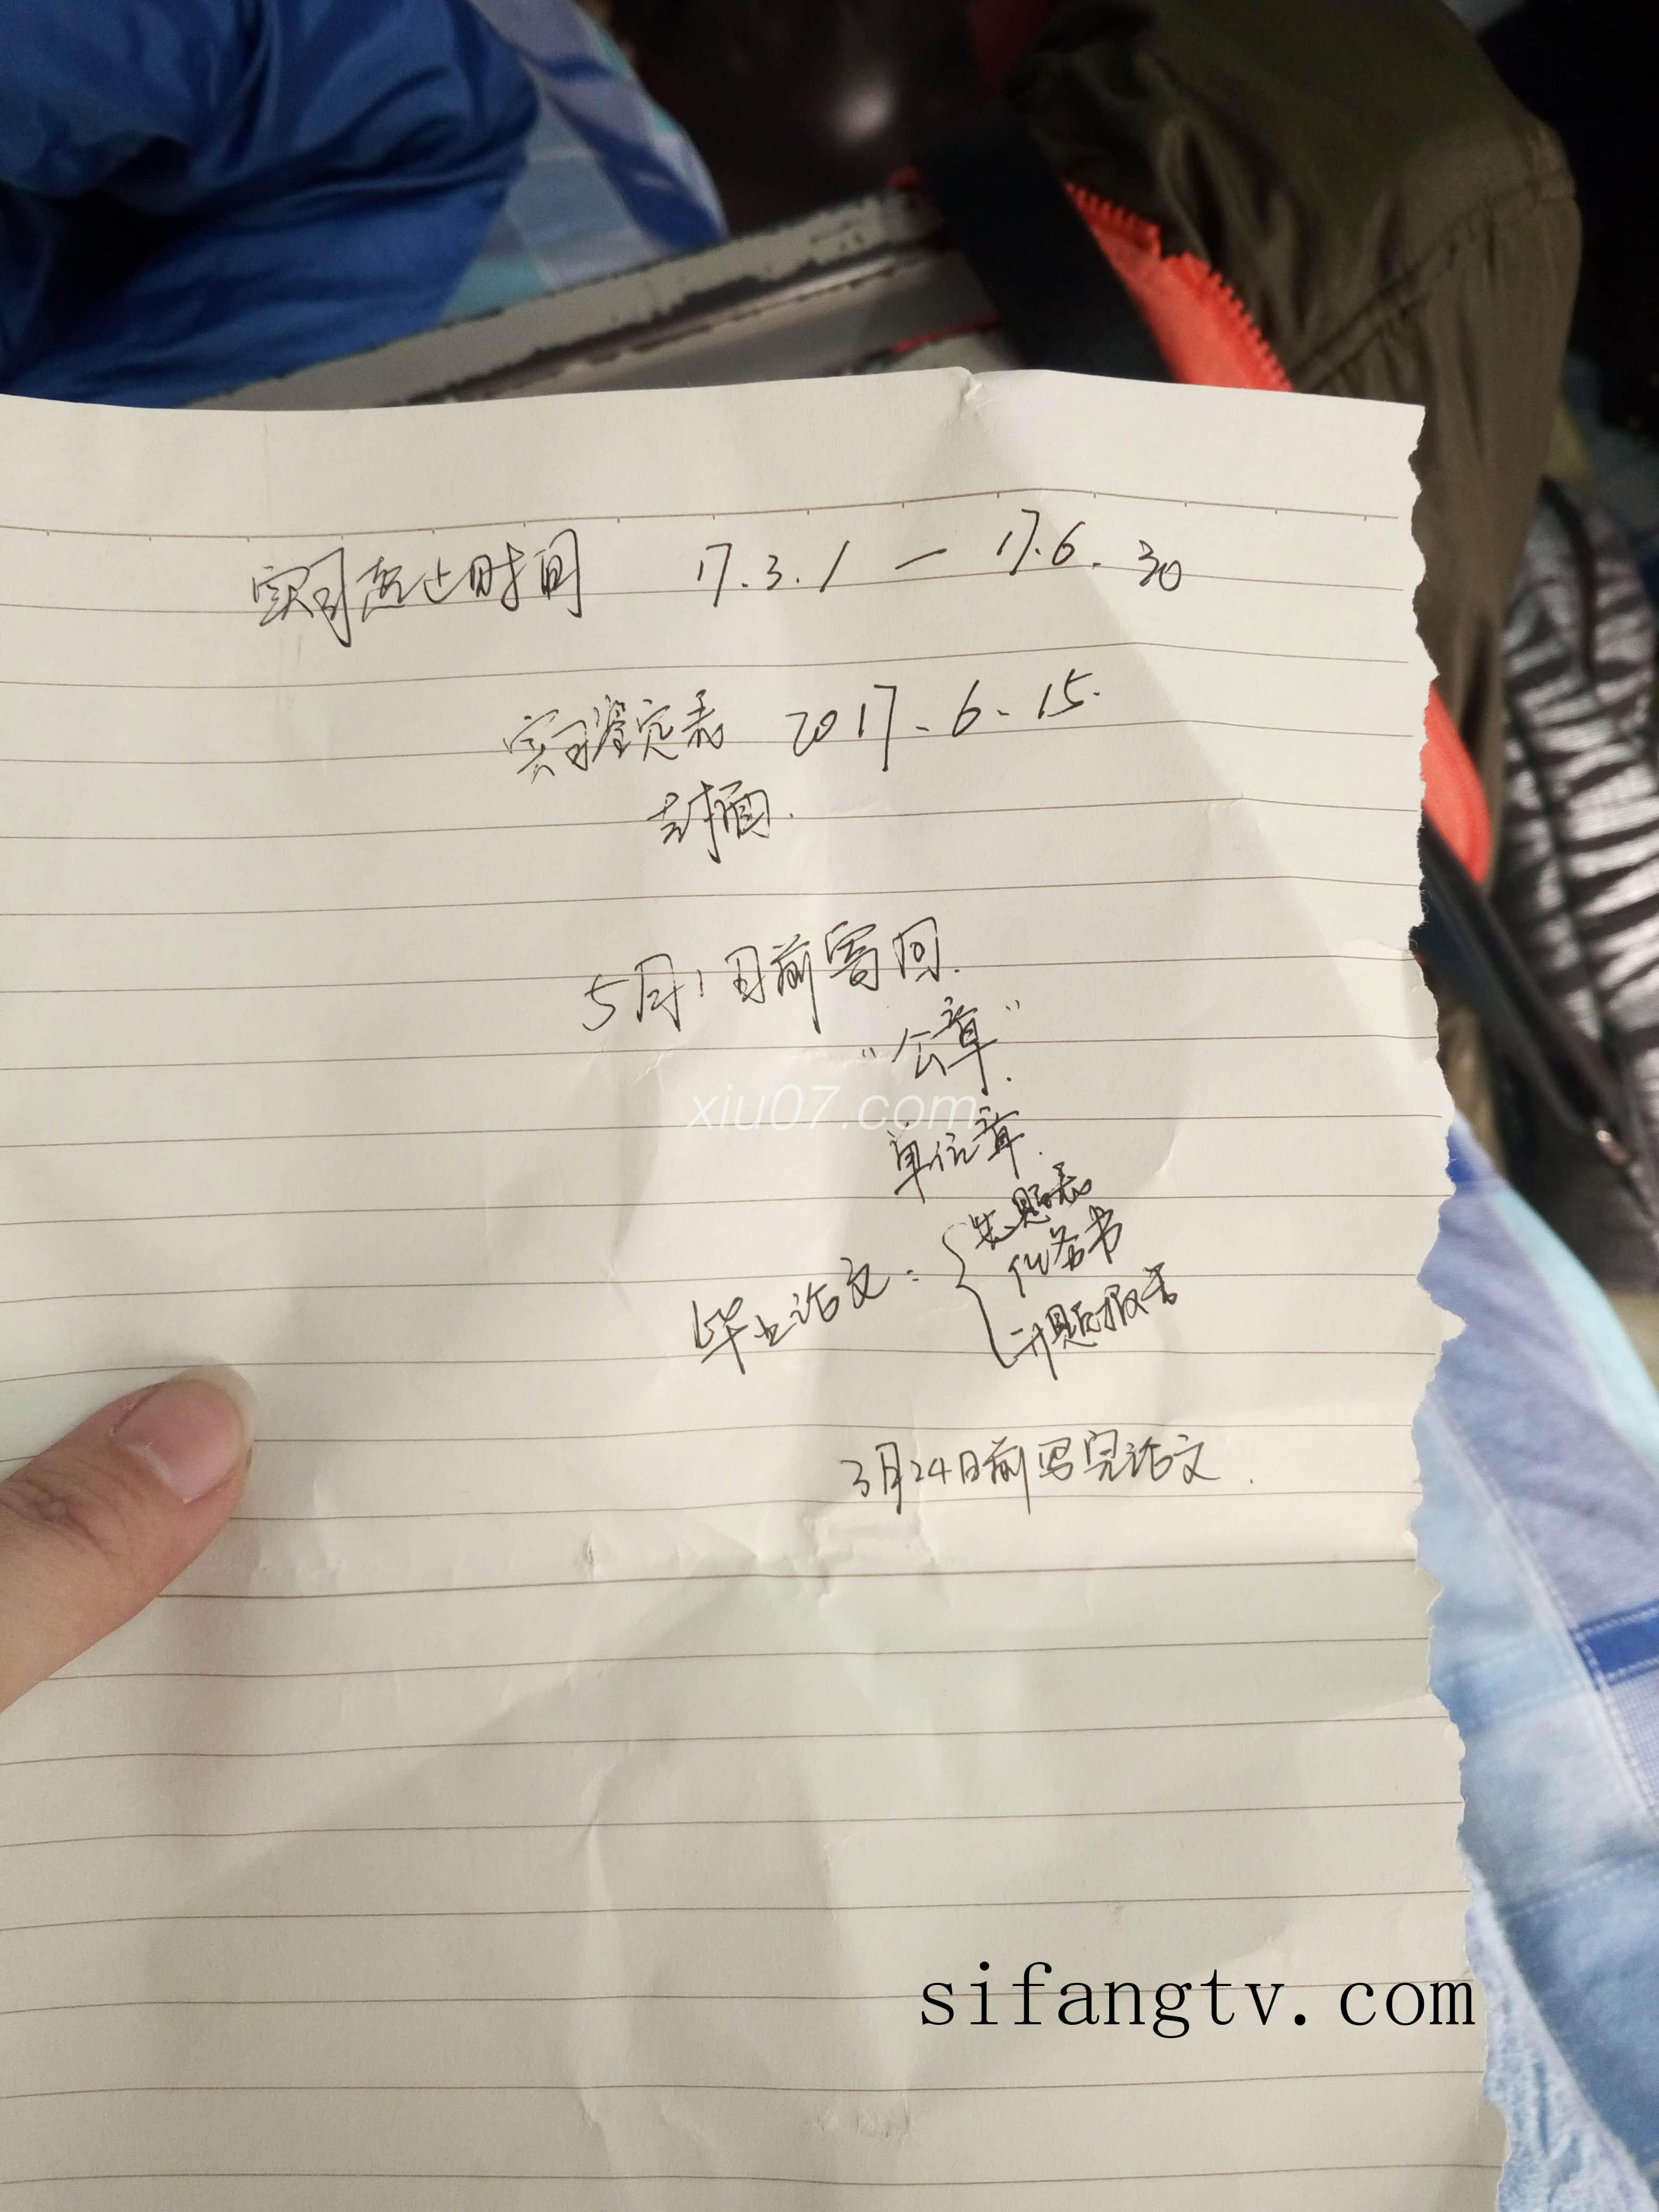 实习起止时间 17.3.1 — 17.6.30
实习鉴定表 2017.6.15.
封面.
5月1日前寄回.
“公章”.
xiu07.com
单位章.
毕业论文: { 选题表
任务书
开题报告
3月24日前写完论文.
sifangtv.com